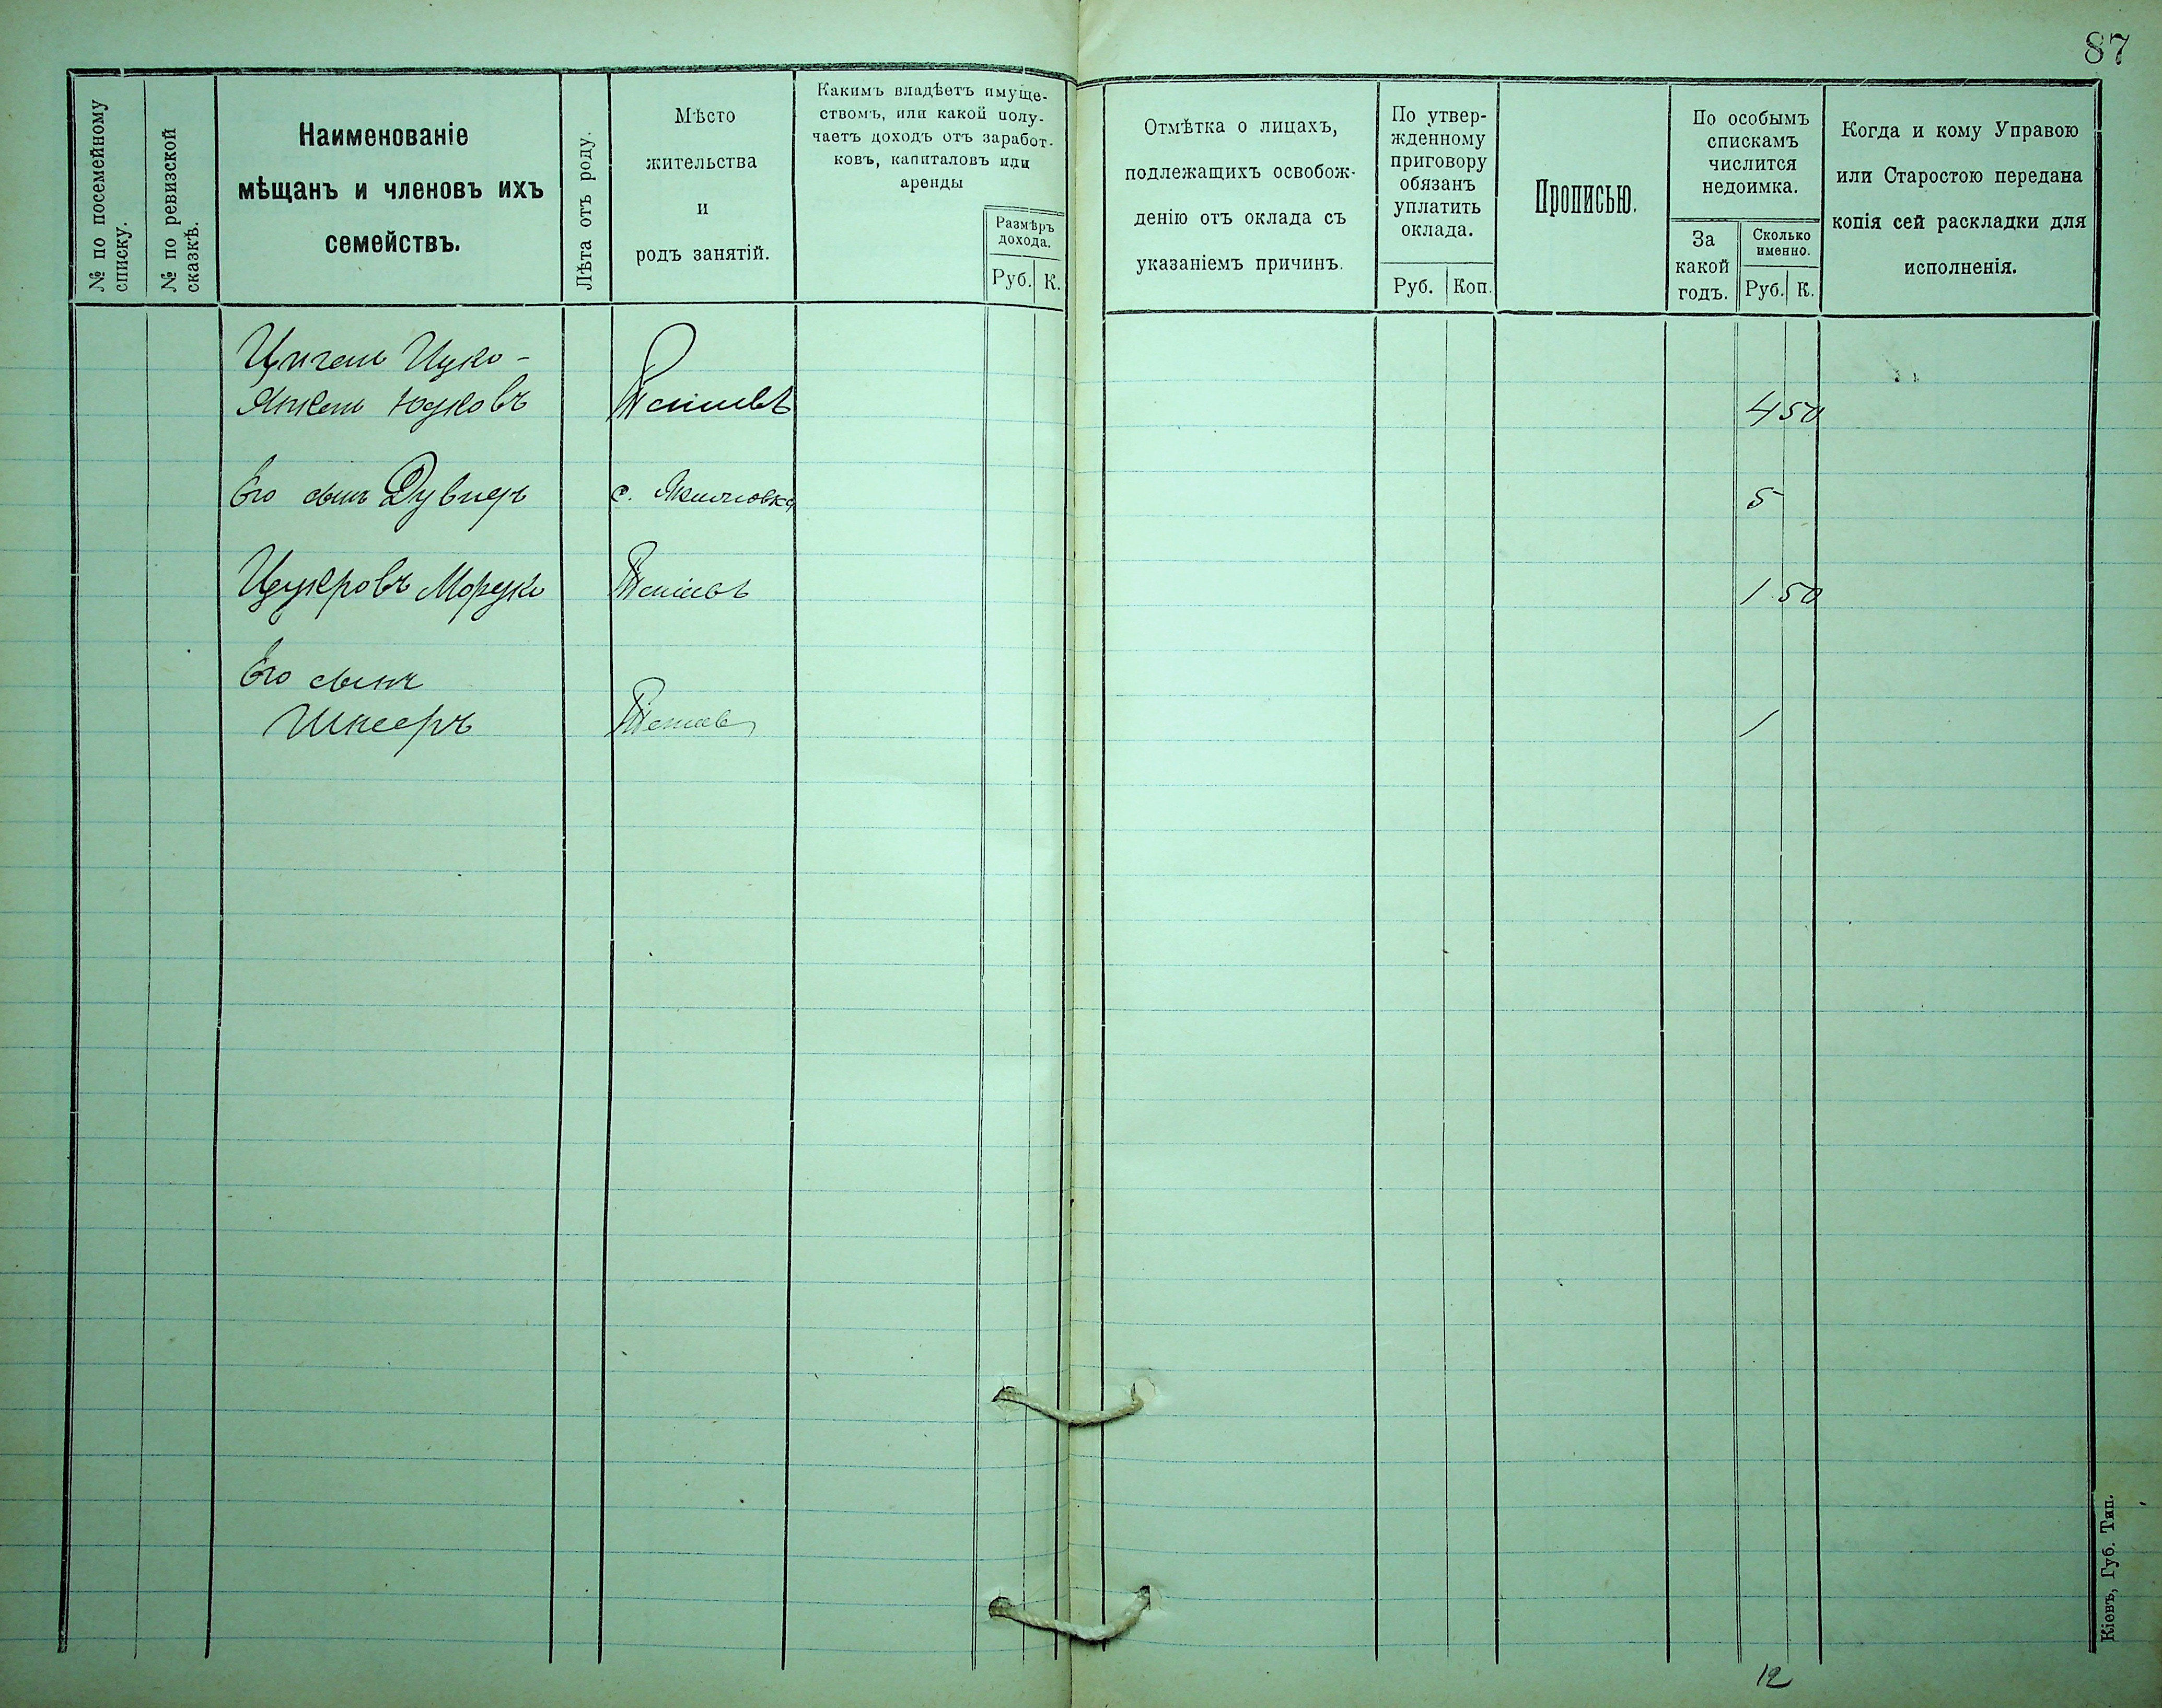 87
№ по посемейному
списку.
№ по ревизской
сказкѣ.
Наименованіе
мѣщанъ и членовъ ихъ
семействъ.
Лѣта отъ роду.
Мѣсто
жительства
и
родъ занятій.
Какимъ владѣетъ имуще-
ствомъ, или какой полу-
чаетъ доходъ отъ заработ-
ковъ, капиталовъ или
аренды
Размѣръ
дохода.
Руб. К.
Отмѣтка о лицахъ,
подлежащихъ освобож-
денію отъ оклада съ
указаніемъ причинъ.
По утвер-
жденному
приговору
обязанъ
уплатить
оклада.
Руб. Коп.
Прописью.
По особымъ
спискамъ
числится
недоимка.
За
какой
годъ.
Сколько
именно.
Руб. К.
Когда и кому Управою
или Старостою передана
копія сей раскладки для
исполненія.
Ицко-
Янкель Юдковъ
4 50
Его сынъ Дувидъ с.
5
Цукровъ Мордко
1 50
Его сынъ
1
12
Кіевъ, Губ. Тип.